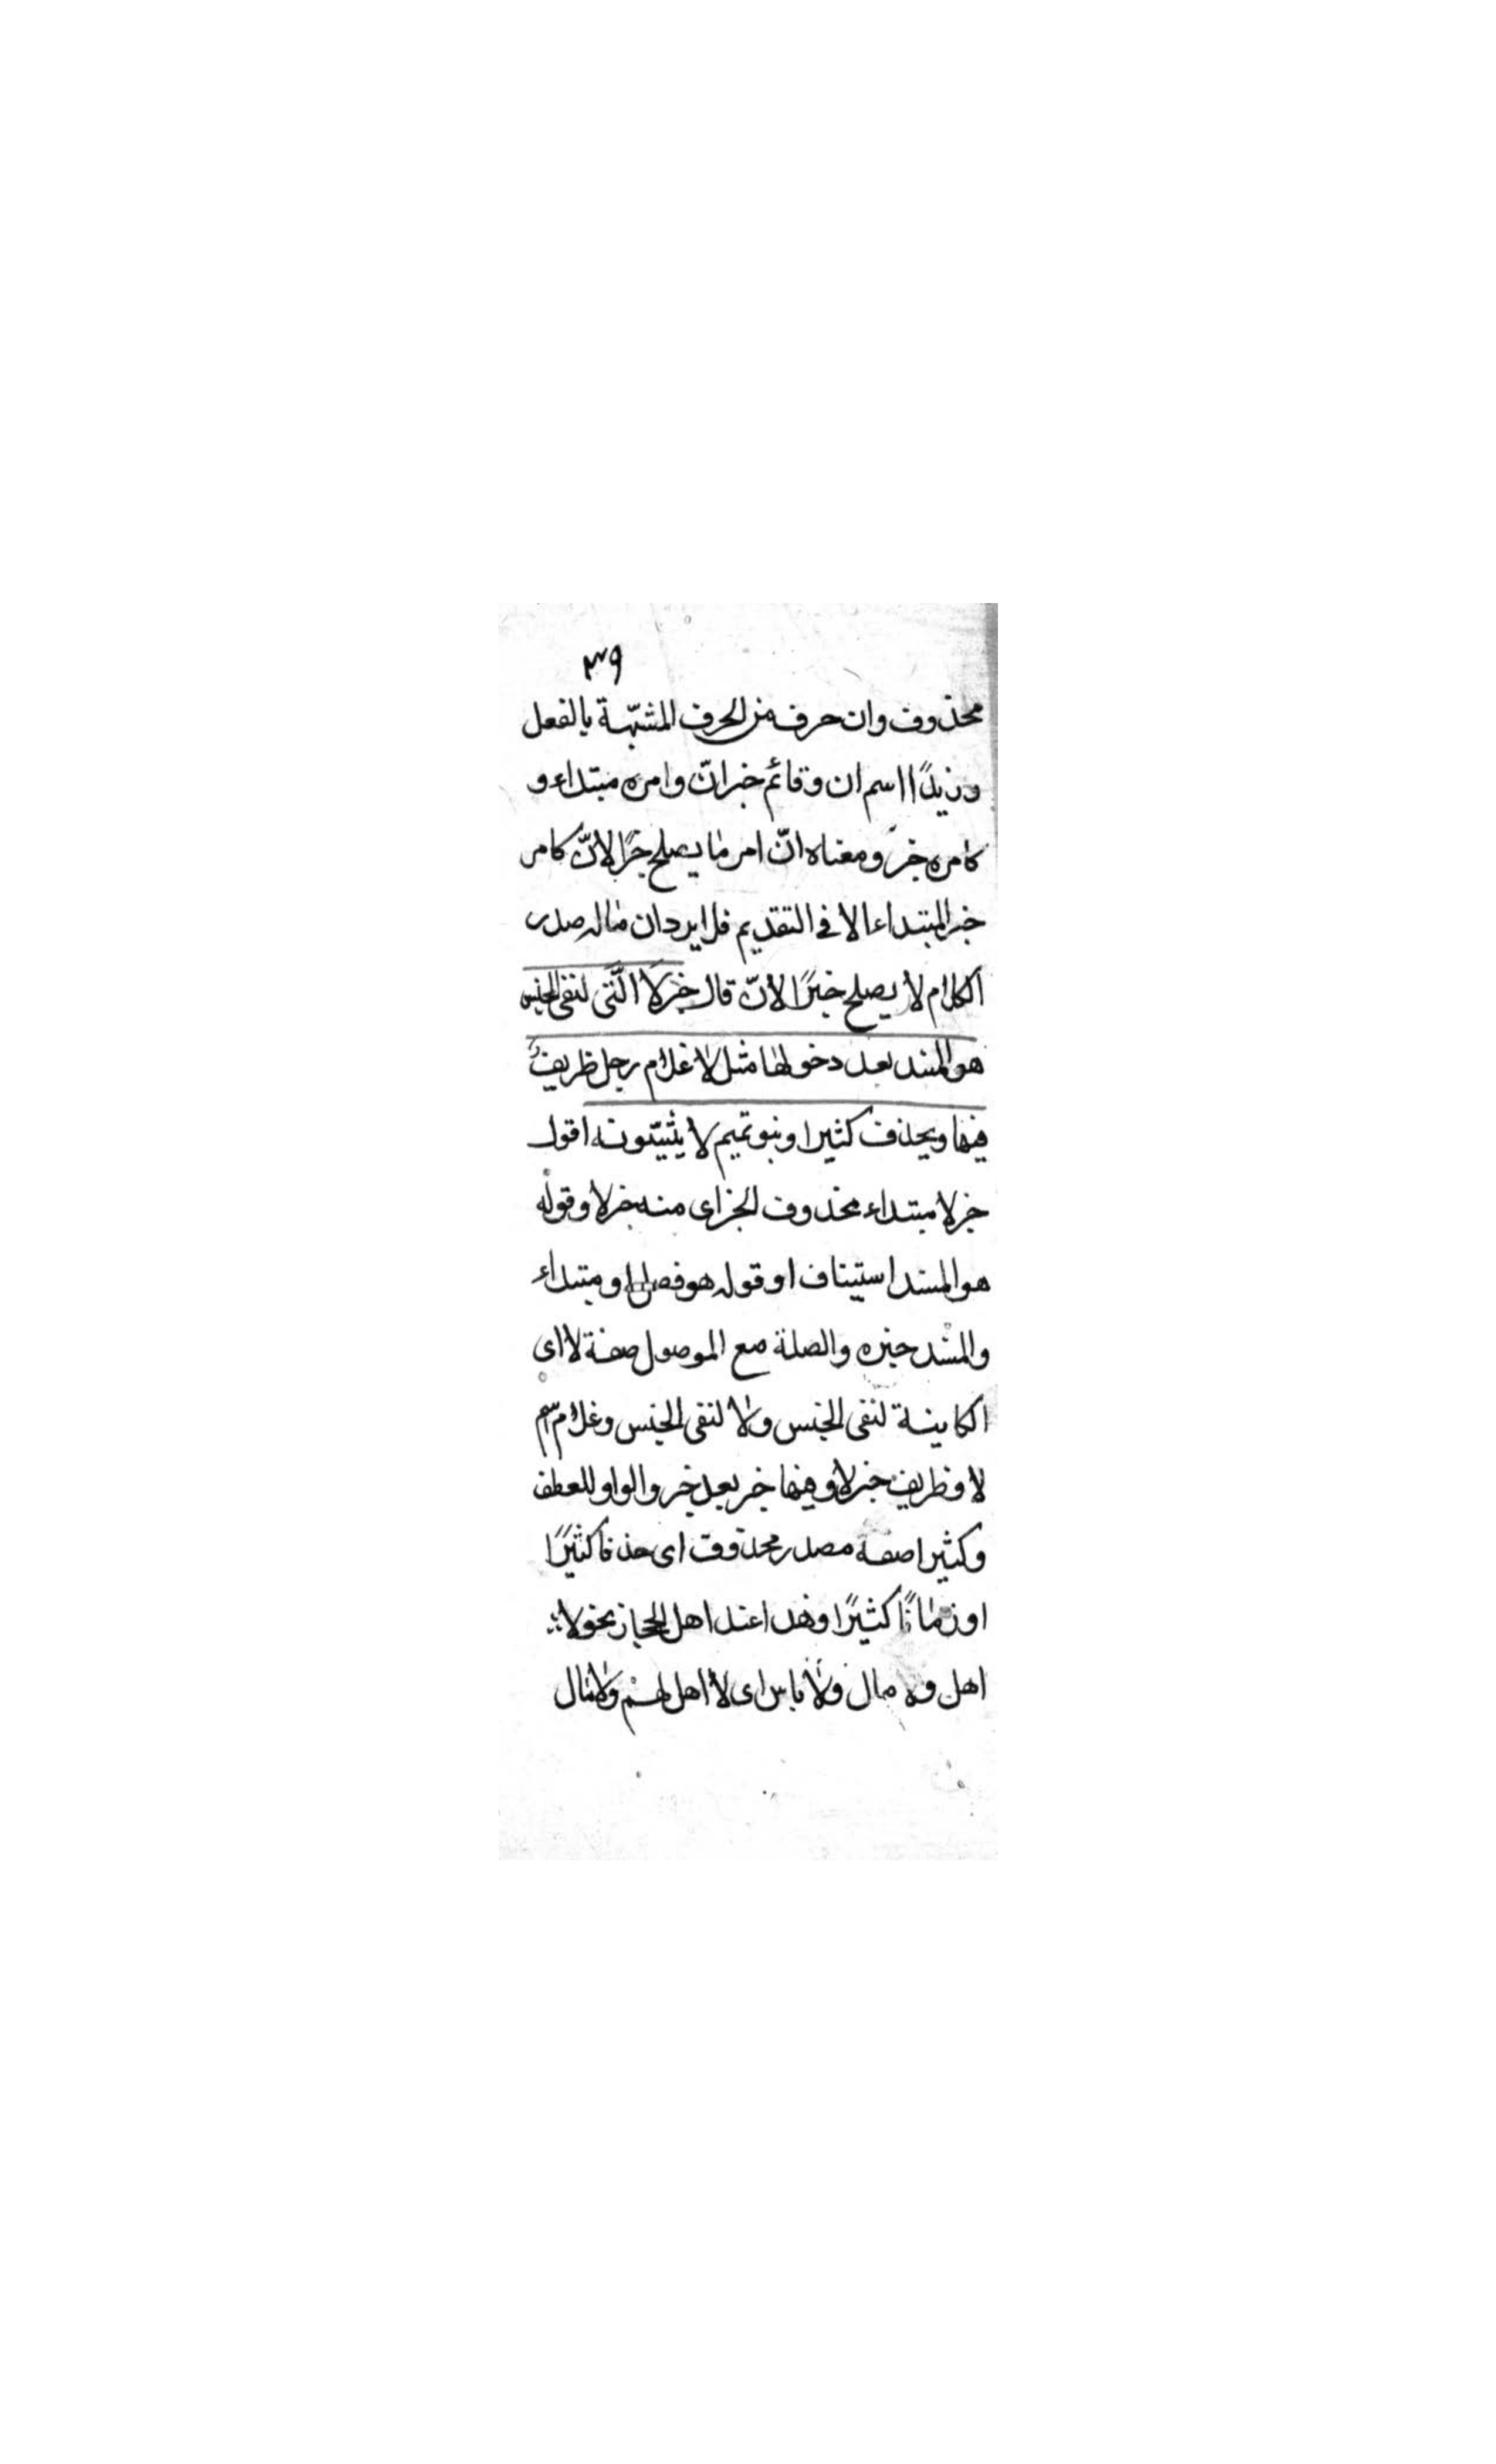 ٣٩
محذوف وان حرف من الحرف المشبّهة بالفعل
وزيدًا اسم ان وقائم خبر انّ وامره مبتداء و
كامره خبر ومعناه انّ امر ما يصلح خبرًا لانّ كامر
خبر المبتداء الا فى التقديم فلا يرد ان ماله صدر
الكلام لا يصلح خبرًا لانّ قال خبر لا الّتى لنفى الجنس
هو المسند بعد دخولها مثل لا غلام رجل ظريفٌ
فيها ويحذف كثيرا وبنو تميم لا يثبتونه اقول
خبر لا مبتداء محذوف الخبر اى منه خبر لا وقوله
هو المسند استيناف او قوله هو فصل او مبتداء
والمسند خبره والصلة مع الموصول صفة لا اى
الكاينة لنفى الجنس ولا لنفى الجنس وغلام اسم
لا وظريف خبر لا وفيها خبر بعد خبر والواو للعطف
وكثيرا صفة مصدر محذوف اى حذفا كثيرًا
او زمانًا كثيرًا وهذا عند اهل الحجاز نحو لا
اهل ولا مال ولا باس اى لا اهل لهم ولا مال